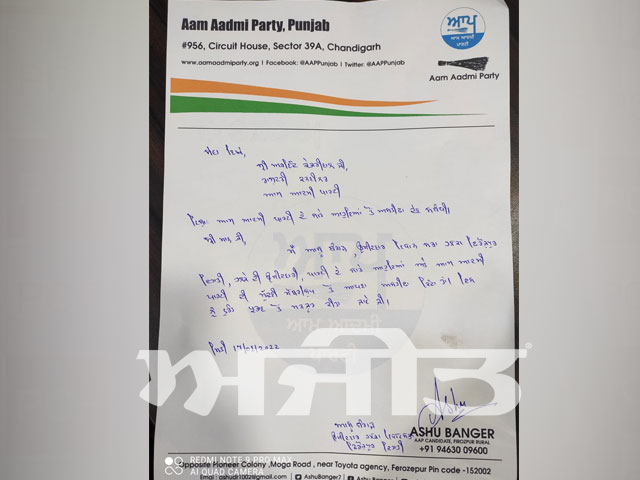 Aam Aadmi Party, Punjab
#956, Circuit House, Sector 39A, Chandigarh
www.aamaadmiparty.org | Facebook: @AAPPunjab | Twitter: @AAPPunjab
ਆਪ
ਆਮ ਆਦਮੀ
ਪਾਰਟੀ
Aam Aadmi Party
ਸੇਵਾ ਵਿਖੇ,
ਸ੍ਰੀ ਅਰਵਿੰਦ ਕੇਜਰੀਵਾਲ ਜੀ,
ਆਮ ਆਦਮੀ ਪਾਰਟੀ
ਵਿਸ਼ਾ: ਆਮ ਆਦਮੀ ਪਾਰਟੀ ਦੇ ਸਾਰੇ ਅਹੁਦਿਆਂ ਤੋਂ ਅਸਤੀਫਾ ਦੇਣ ਸਬੰਧੀ।
ਸ੍ਰੀ ਮਾਨ ਜੀ,
ਮੈਂ ਆਸ਼ੂ ਬੰਗੜ ਉਮੀਦਵਾਰ ਵਿਧਾਨ ਸਭਾ ਹਲਕਾ ਫਿਰੋਜ਼ਪੁਰ
ਦਿਹਾਤੀ, ਹਲਕੇ ਦੀ ਉਮੀਦਵਾਰੀ, ਪਾਰਟੀ ਦੇ ਸਾਰੇ ਅਹੁਦਿਆਂ ਅਤੇ ਆਮ ਆਦਮੀ
ਪਾਰਟੀ ਦੀ ਮੁੱਢਲੀ ਮੈਂਬਰਸ਼ਿਪ ਤੋਂ ਆਪਣਾ ਅਸਤੀਫਾ ਦਿੰਦਾ ਹਾਂ। ਇਸ
ਨੂੰ ਤੁਰੰਤ ਤੋਂ ਮਨਜ਼ੂਰ ਕੀਤਾ ਜਾਵੇ ਜੀ।
ਆਮ ਆਦਮੀ
ਮਿਤੀ 17/01/2022
ਅਜੀਤ
Ashu
ਆਸ਼ੂ ਬੰਗੜ
ਉਮੀਦਵਾਰ ਹਲਕਾ
ਫਿਰੋਜ਼ਪੁਰ ਦਿਹਾਤੀ
ASHU BANGER
AAP CANDIDATE, FEROZPUR RURAL
+91 94630 09600
REDMI NOTE 9 PRO MAX
AI QUAD CAMERA
Opposite Pioneer Colony ,Moga Road , near Toyota agency, Ferozepur Pin code -152002
Email : ashudr1002@gmail.com | AshuBanger7 | AshuBanger